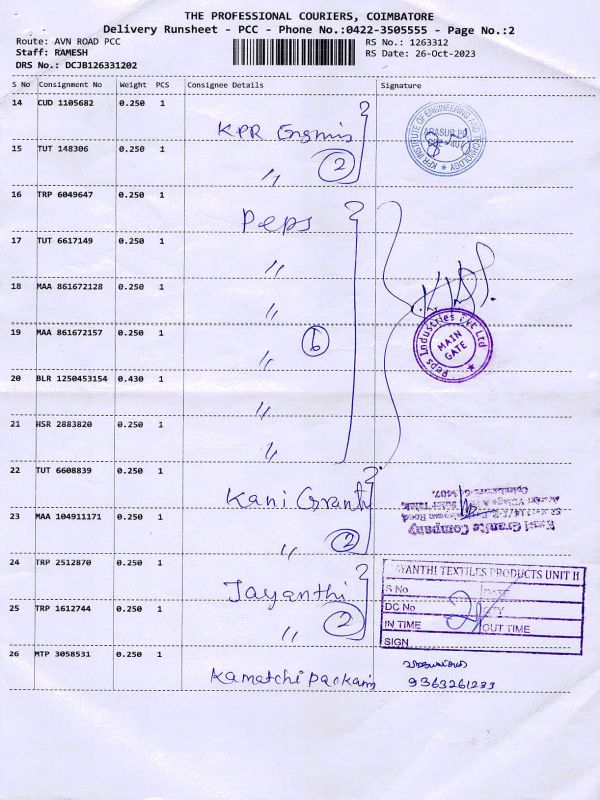 THE PROFESSIONAL COURIERS, COIMBATORE
Delivery Runsheet - PCC - Phone No.:0422-3505555 - Page No.:2
Route: AVN ROAD PCC
RS No.: 1263312
Staff: RAMESH
RS Date: 26-Oct-2023
DRS No.: DCJB126331202
S No Consignment No Weight PCS Consignee Details Signature
14 CUD 1105682 0.250 1
KPR
KPR INSTITUTE OF ENGINEERING AND TECHNOLOGY
15 TUT 148306 0.250 1 〃 2
16 TRP 6049647 0.250 1
Peps
17 TUT 6617149 0.250 1 〃
18 MAA 861672128 0.250 1 〃
19 MAA 861672157 0.250 1 〃 6
Peps Industries Pvt Ltd
MAIN GATE
20 BLR 1250453154 0.430 1 〃
21 HSR 2883820 0.250 1 〃
22 TUT 6608839 0.250 1
Kani Granti
Kani Granite Company
23 MAA 104911171 0.250 1 〃 2
24 TRP 2512870 0.250 1
Jayanthi
AYANTHI TEXTILES PRODUCTS UNIT II
S No DATE
DC No QTY
IN TIME OUT TIME
SIGN
25 TRP 1612744 0.250 1 〃 2
26 MTP 3058531 0.250 1
Kamatchi
9363261233